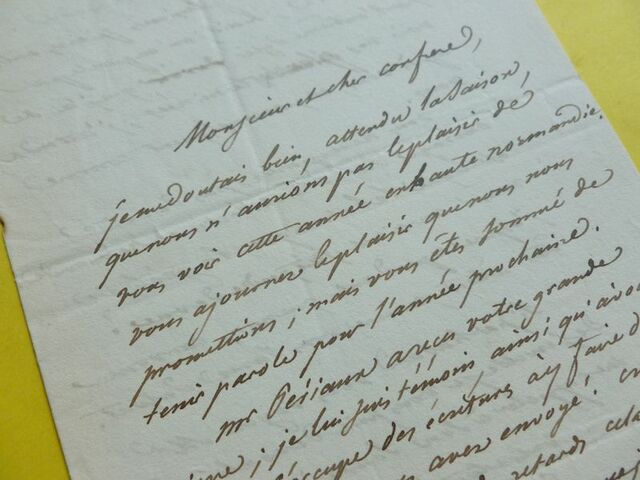 Monsieur et cher confrere,
je me doutais bien, attendu la saison,
que nous n'aurions pas le plaisir de
vous voir cette année en haute normandie.
vous ajournez le plaisir que nous nous
promettions; mais vous êtes sommé de
tenir parole pour l'année prochaine.
mr Periaux a reçu votre grande
; je lui suis témoin ainsi qu'avo
des écritures à y faire d
avez envoyé. en
retards cela